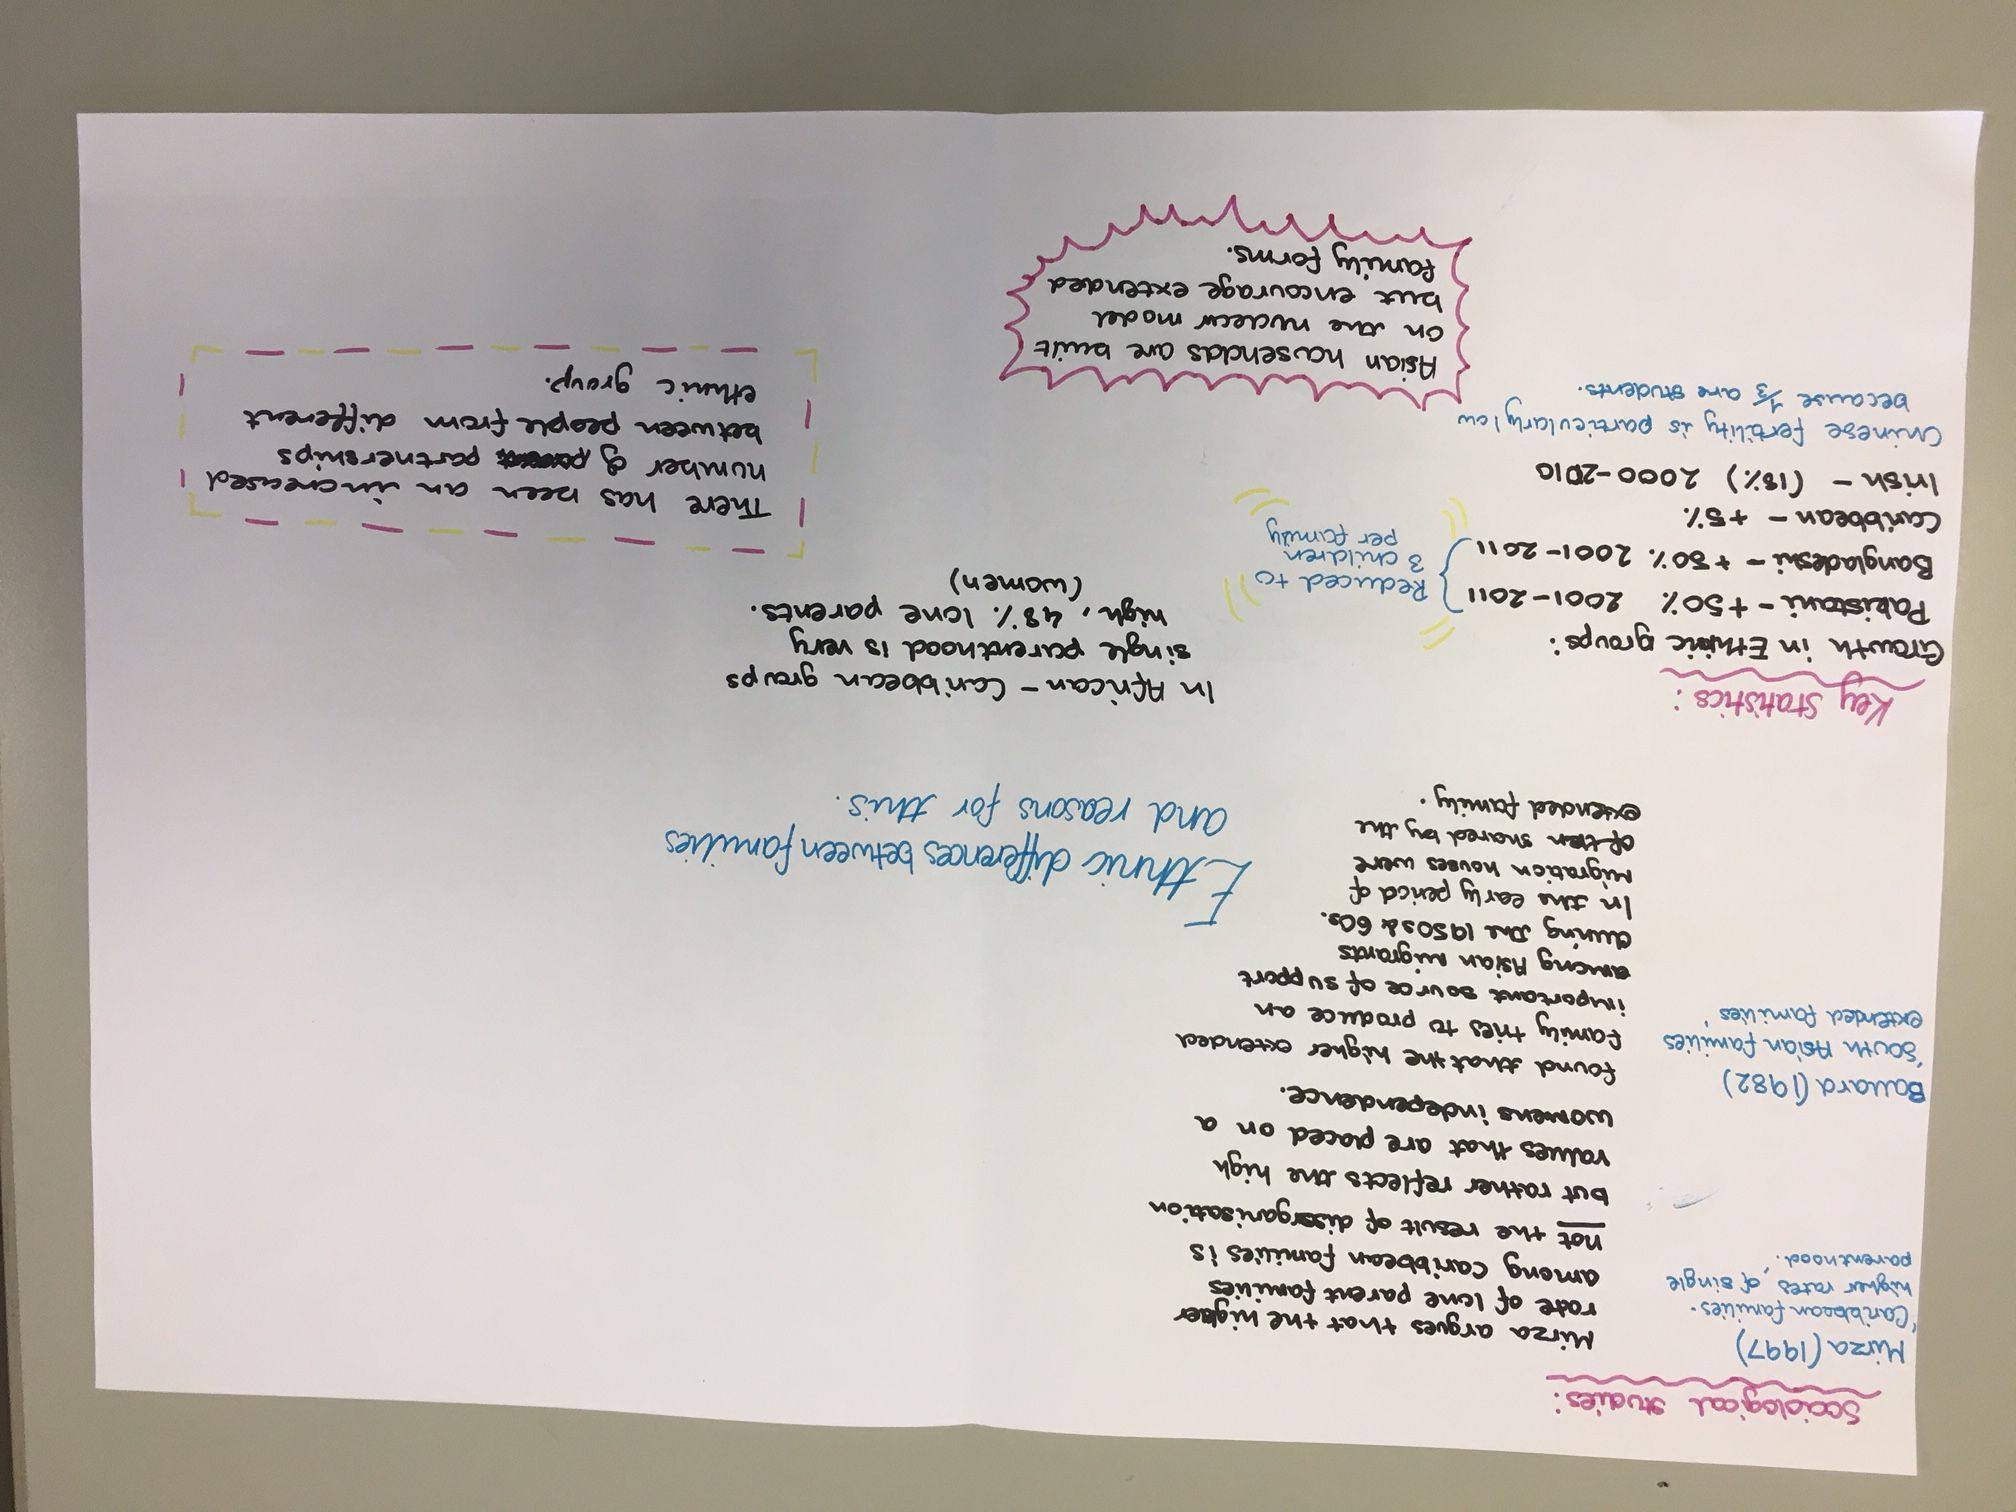 Sociological studies:
Mirza (1997)
'Caribbean families.
higher rates of single
parenthood.'
Mirza argues that the higher
rate of lone parent families
among Caribbean families is
not the result of dissrganisation
but rather reflects the high
values that are placed on a
womens independence.
Ballard (1982)
'South Asian families
extended families'
found that the higher extended
family tries to produce an
important source of support
among Asian migrants
during the 1950s & 60s.
In the early period of
migration houses were
often shared by the
extended family.
Ethnic differences between families
and reasons for this.
Key statistics:
Growth in Ethnic groups:
Pakistani - +50% 2001-2011
Bangladeshi - +50% 2001-2011
Caribbean - +5%
Irish - (18%) 2000-2010
Reduced to
3 children
per family
Chinese fertility is particularly low
because 1/3 are students.
In African - Caribbean groups
single parenthood is very
high, 48% lone parents.
(women)
Asian housendas are built
on the nuclear model
but encourage extended
family forms.
There has been an increased
number of partnerships
between people from different
ethnic group.